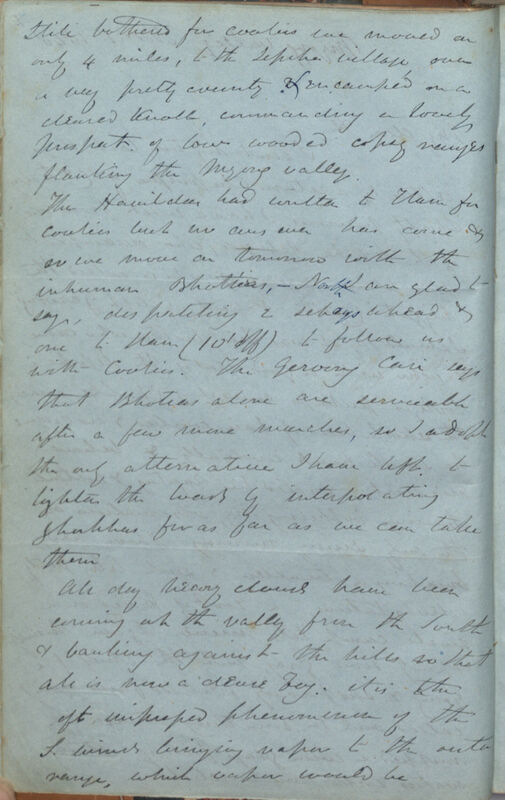 Still bothered for coolies we moved on
only 4 miles, to the Lepcha village, over
a very pretty country & encamped on a
cleared Knoll, commanding a lovely
prospect of low wooded ranges
flanking the Myong valley.
The Havildar had written to Ilam for
Coolies but no answer has come &
so we move on tomorrow with the
inhuman Bhoteas, – I am glad to
say, despatching 2 sepoys ahead &
one to Ilam (10' off) to follow us
with Coolies. The Cari says
that Bhoteas alone are serviceable
after a few more marches, so I adopt
the only alternative I have left, to
lighten the loads by interpolating
Ghorkhas for as far as we can take
them
All day heavy clouds have been
coming up the valley from the South
& banking against the hills so that
all is now a dense fog. it is the
oft phenomenon of the
S. winds bringing vapor to the outer
range, which vapor would be